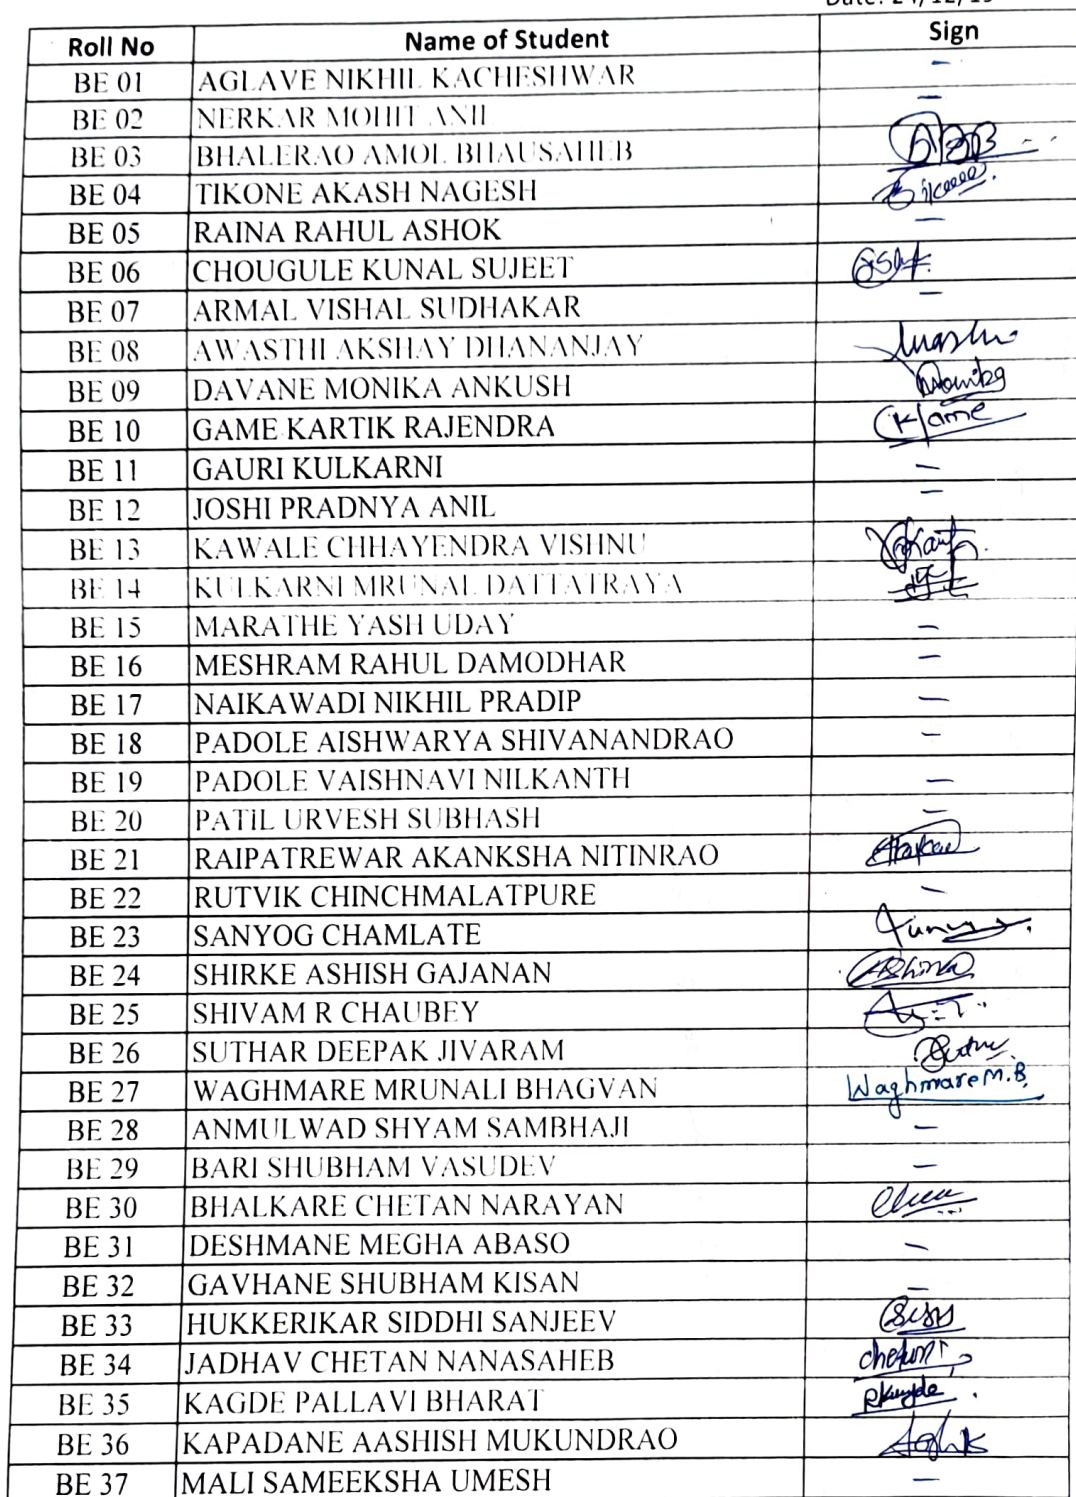 Date: 24/12/19
Roll No Name of Student Sign
BE 01 AGLAVE NIKHIL KACHESHWAR -
BE 02 NERKAR MOHIT ANIL -
BE 03 BHALERAO AMOL BHAUSAHEB
BE 04 TIKONE AKASH NAGESH
BE 05 RAINA RAHUL ASHOK -
BE 06 CHOUGULE KUNAL SUJEET
BE 07 ARMAL VISHAL SUDHAKAR -
BE 08 AWASTHI AKSHAY DHANANJAY
BE 09 DAVANE MONIKA ANKUSH
BE 10 GAME KARTIK RAJENDRA
BE 11 GAURI KULKARNI -
BE 12 JOSHI PRADNYA ANIL -
BE 13 KAWALE CHHAYENDRA VISHNU
BE 14 KULKARNI MRUNAL DATTATRAYA
BE 15 MARATHE YASH UDAY -
BE 16 MESHRAM RAHUL DAMODHAR -
BE 17 NAIKAWADI NIKHIL PRADIP -
BE 18 PADOLE AISHWARYA SHIVANANDRAO -
BE 19 PADOLE VAISHNAVI NILKANTH -
BE 20 PATIL URVESH SUBHASH -
BE 21 RAIPATREWAR AKANKSHA NITINRAO
BE 22 RUTVIK CHINCHMALATPURE -
BE 23 SANYOG CHAMLATE
BE 24 SHIRKE ASHISH GAJANAN
BE 25 SHIVAM R CHAUBEY
BE 26 SUTHAR DEEPAK JIVARAM
BE 27 WAGHMARE MRUNALI BHAGVAN Waghmare M.B.
BE 28 ANMULWAD SHYAM SAMBHAJI -
BE 29 BARI SHUBHAM VASUDEV -
BE 30 BHALKARE CHETAN NARAYAN
BE 31 DESHMANE MEGHA ABASO -
BE 32 GAVHANE SHUBHAM KISAN -
BE 33 HUKKERIKAR SIDDHI SANJEEV
BE 34 JADHAV CHETAN NANASAHEB
BE 35 KAGDE PALLAVI BHARAT
BE 36 KAPADANE AASHISH MUKUNDRAO
BE 37 MALI SAMEEKSHA UMESH -